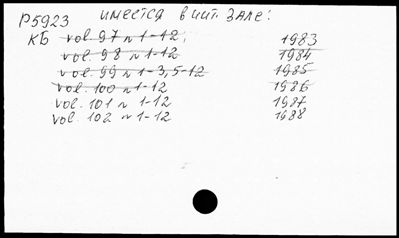 P5923 имеется в чит. зале:
КБ vol. 97 n 1-12, 1983
vol. 98 n 1-12 1984
vol. 99 n 1-3, 5-12 1985
vol. 100 n 1-12 1986
vol. 101 n 1-12 1987
vol 102 n 1-12 1988